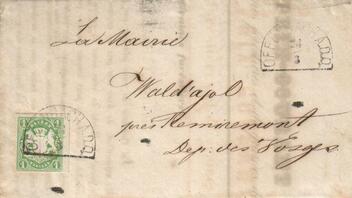 La Mairie
Wald'ajol
près Remiremont
Dep. des Vosges
1 1